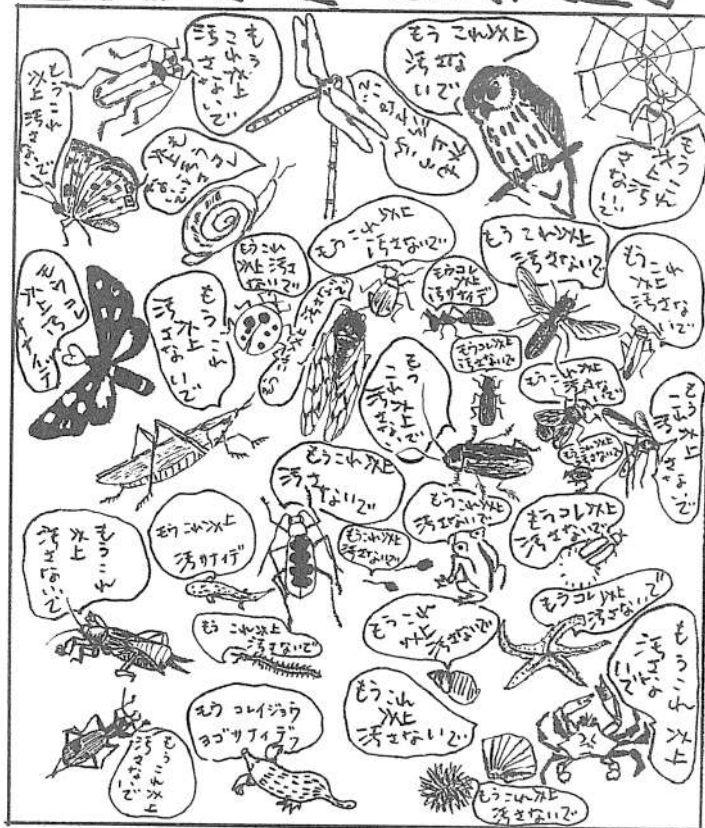 もうこれ
以上
汚さないで
もう
これ以上
汚さな
いで
もう これ以上
汚さな
いで
もう
これ
以上
汚さ
ないで
もうこれ以上
汚さないで
もうこれ
以上汚さ
ないで
もうコレ
以上
汚サナイデ
もう これ以上
汚さないで
もうこれ
以上
汚さ
ないで
もうこれ
以上
汚さ
ないで
もう
これ
以上
汚さ
ないで
もうコレ以上
汚さないで
もうこれ以上
汚さ
ないで
もうこれ以上
汚さ
ないで
もうこれ以上
汚さ
ないで
もうこれ以上
汚さないで
もうこれ以上
汚さないで
もうコレ以上
汚さないで
もうこれ
以上
汚さないで
もうこれ以上
汚サナイデ
もう これ以上
汚さないで
もうこれ
以上汚さないで
もうコレ以上
汚さないで
もうこれ以上
汚さな
いで
もうこれ以上
汚さないで
もう コレイジョウ
ヨゴサナイデ
もうこれ
以上
汚さないで
もうこれ以上
汚さないで